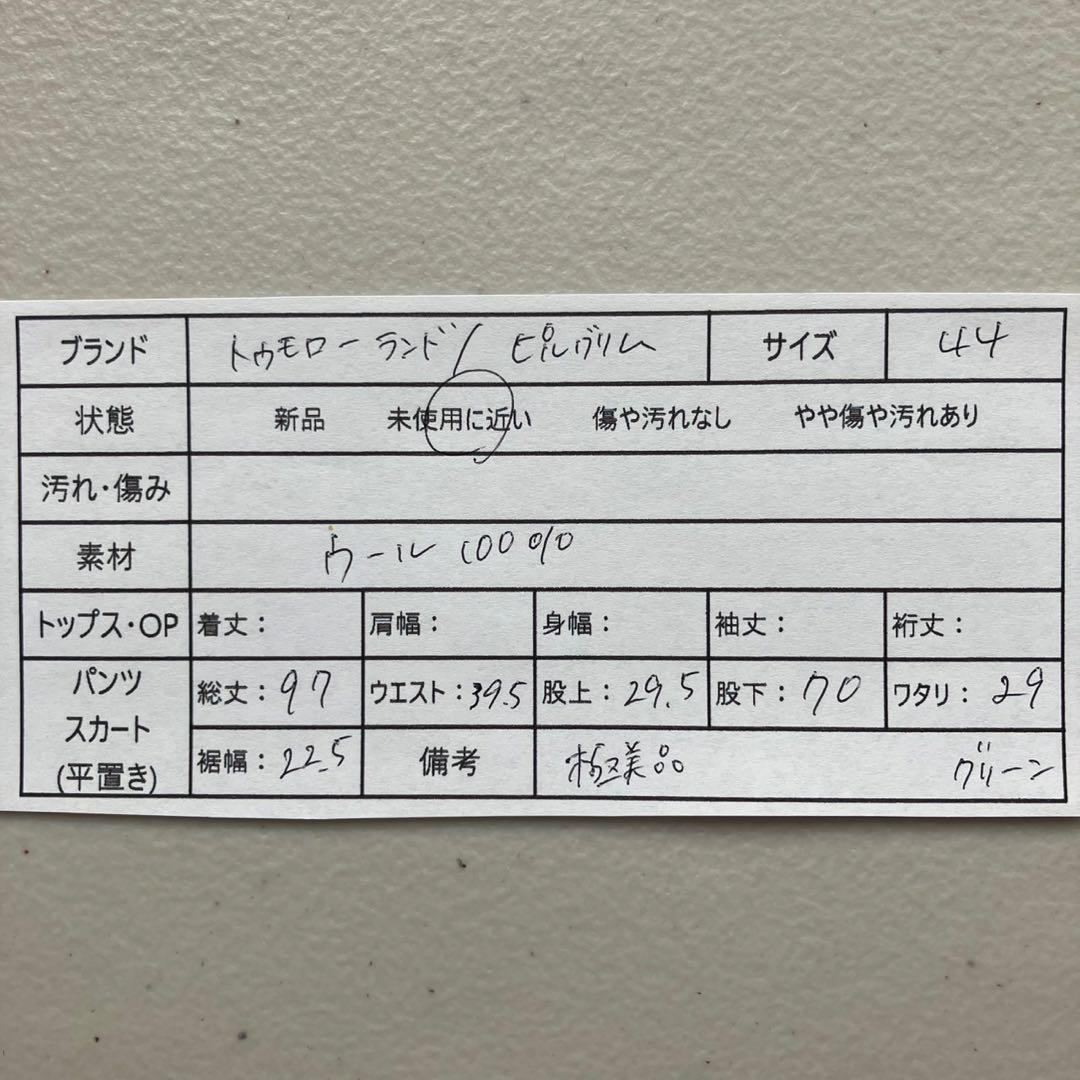 ブランド トゥモローランド/ピルグリム サイズ 44
状態 新品 未使用に近い 傷や汚れなし やや傷や汚れあり
汚れ・傷み
素材 ウール 100%
トップス・OP 着丈： 肩幅： 身幅： 袖丈： 裄丈：
パンツ
スカート
(平置き)
総丈：97 ウエスト：39.5 股上：29.5 股下：70 ワタリ：29
裾幅：22.5 備考 極美品 グリーン